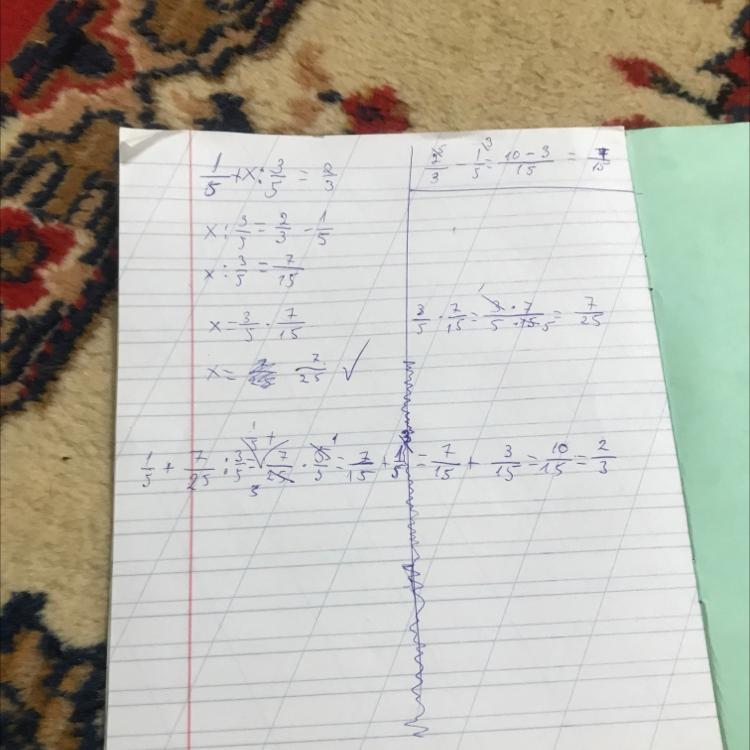 1/5 + x : 3/5 = 2/3
x : 3/5 = 2/3 - 1/5
x : 3/5 = 7/15
x = 3/5 · 7/15
x = 7/25 ✓
2/3 - 1/5 = 10 - 3/15 = 7/15
3/5 · 7/15 = 3 · 7/5 · 15 5 = 7/25
1/5 + 7/25 : 3/5 = 7/25 · 5 = 7/15 + 1/5 = 7/15 + 3/15 = 10/15 = 2/3